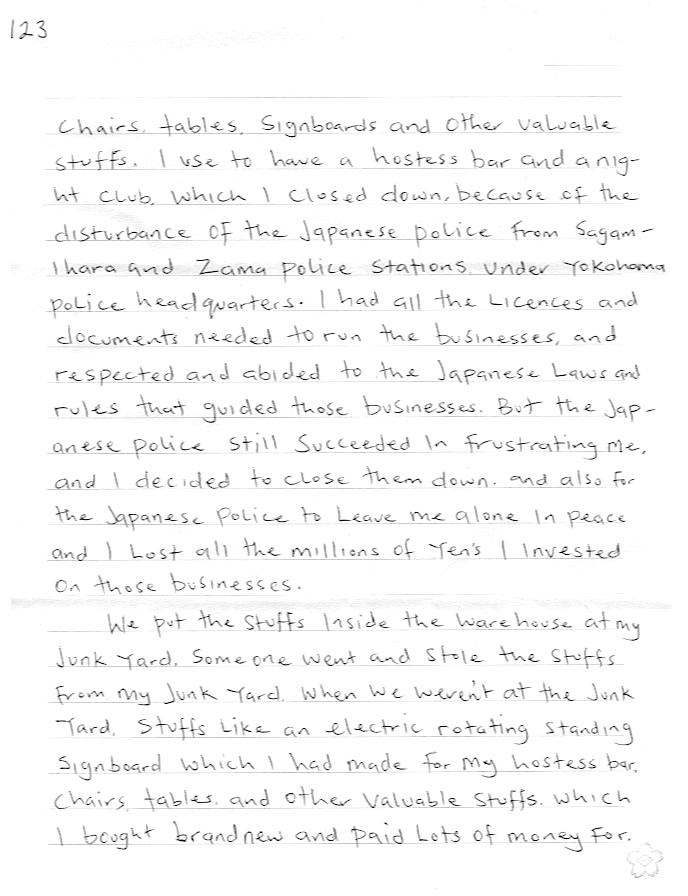 123
Chairs, tables, Signboards and other valuable
stuffs. I use to have a hostess bar and a nig-
ht club, which I closed down, because of the
disturbance of the Japanese police from Sagam-
ihara and Zama police stations, under Yokohama
police headquarters. I had all the Licences and
documents needed to run the businesses, and
respected and abided to the Japanese Laws and
rules that guided those businesses. But the Jap-
anese police still succeeded in frustrating me,
and I decided to close them down. and also for
the Japanese Police to Leave me alone in peace
and I Lost all the millions of Yen's I invested
on those businesses.
We put the stuffs inside the warehouse at my
Junk Yard. Someone went and stole the stuffs
from my Junk Yard. When we weren't at the Junk
Yard. Stuffs Like an electric rotating standing
signboard which I had made for my hostess bar,
chairs, tables, and other valuable stuffs. which
I bought brand new and paid Lots of money for.